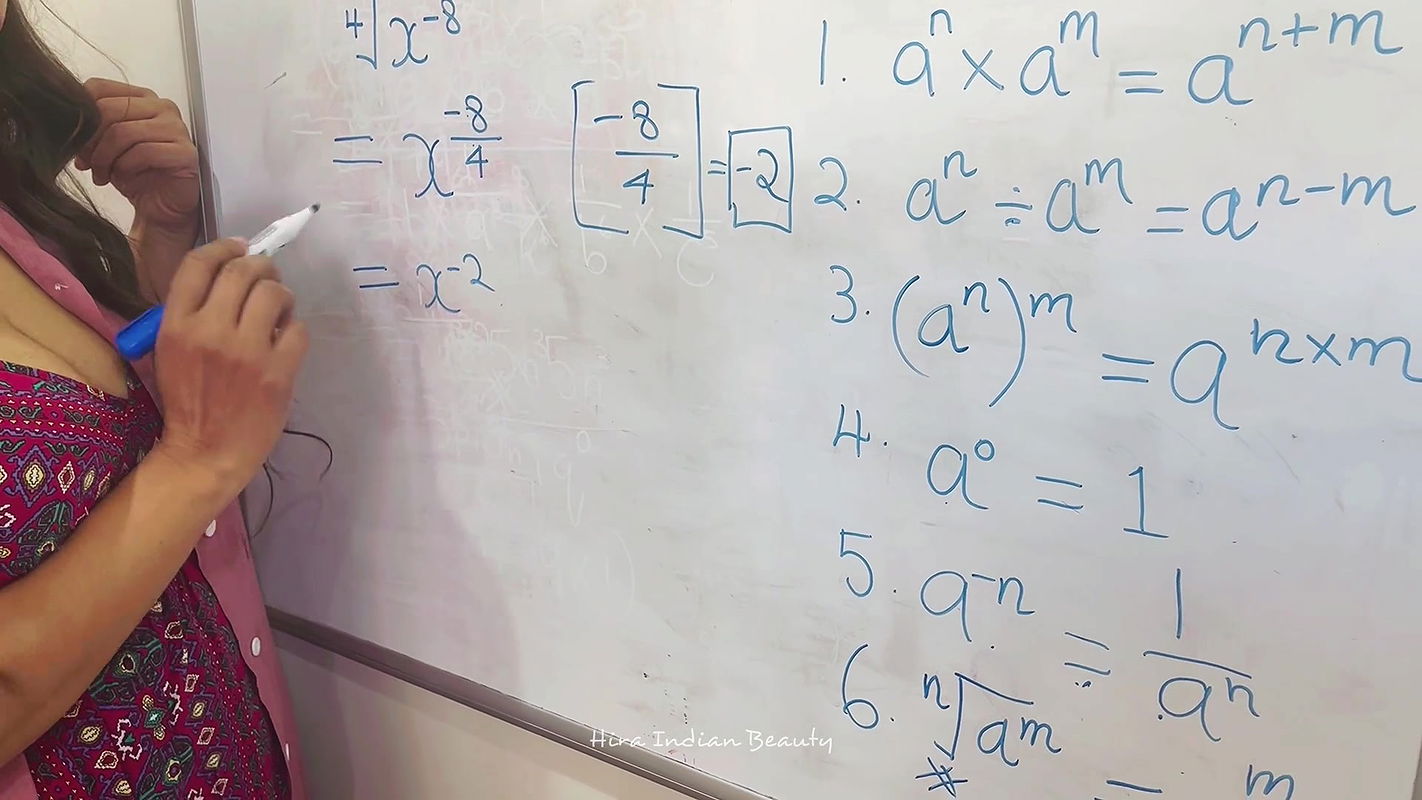 ⁴√x⁻⁸
= x^(-8/4) [-8/4] = -2
= x⁻²
1. aⁿ × aᵐ = aⁿ⁺ᵐ
2. aⁿ ÷ aᵐ = aⁿ⁻ᵐ
3. (aⁿ)ᵐ = a^(n×m)
4. a⁰ = 1
5. a⁻ⁿ = 1/aⁿ
6. ⁿ√aᵐ
* = m
Hira Indian Beauty